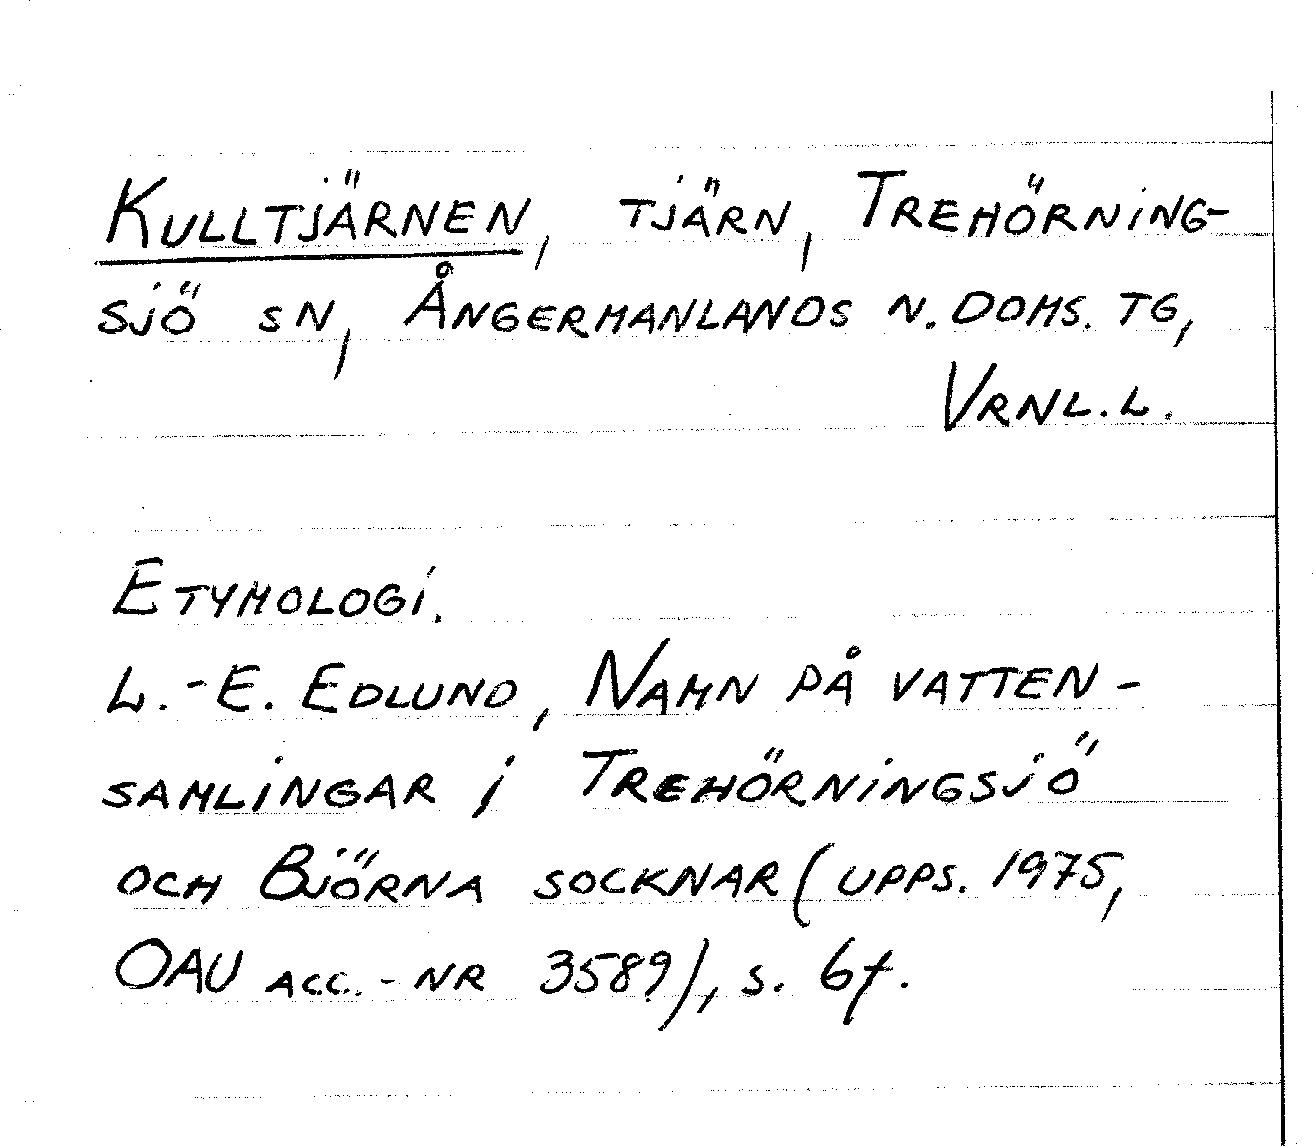 Kulltjärnen, tjärn, Trehörning-
sjö sn, Ångermanlands n. doms. tg,
Vrnl.l.
Etymologi.
L.-E. Edlund, Namn på vatten-
samlingar i Trehörningsjö
och Björna socknar (upps. 1975,
OAU acc.-nr 3589), s. 6f.